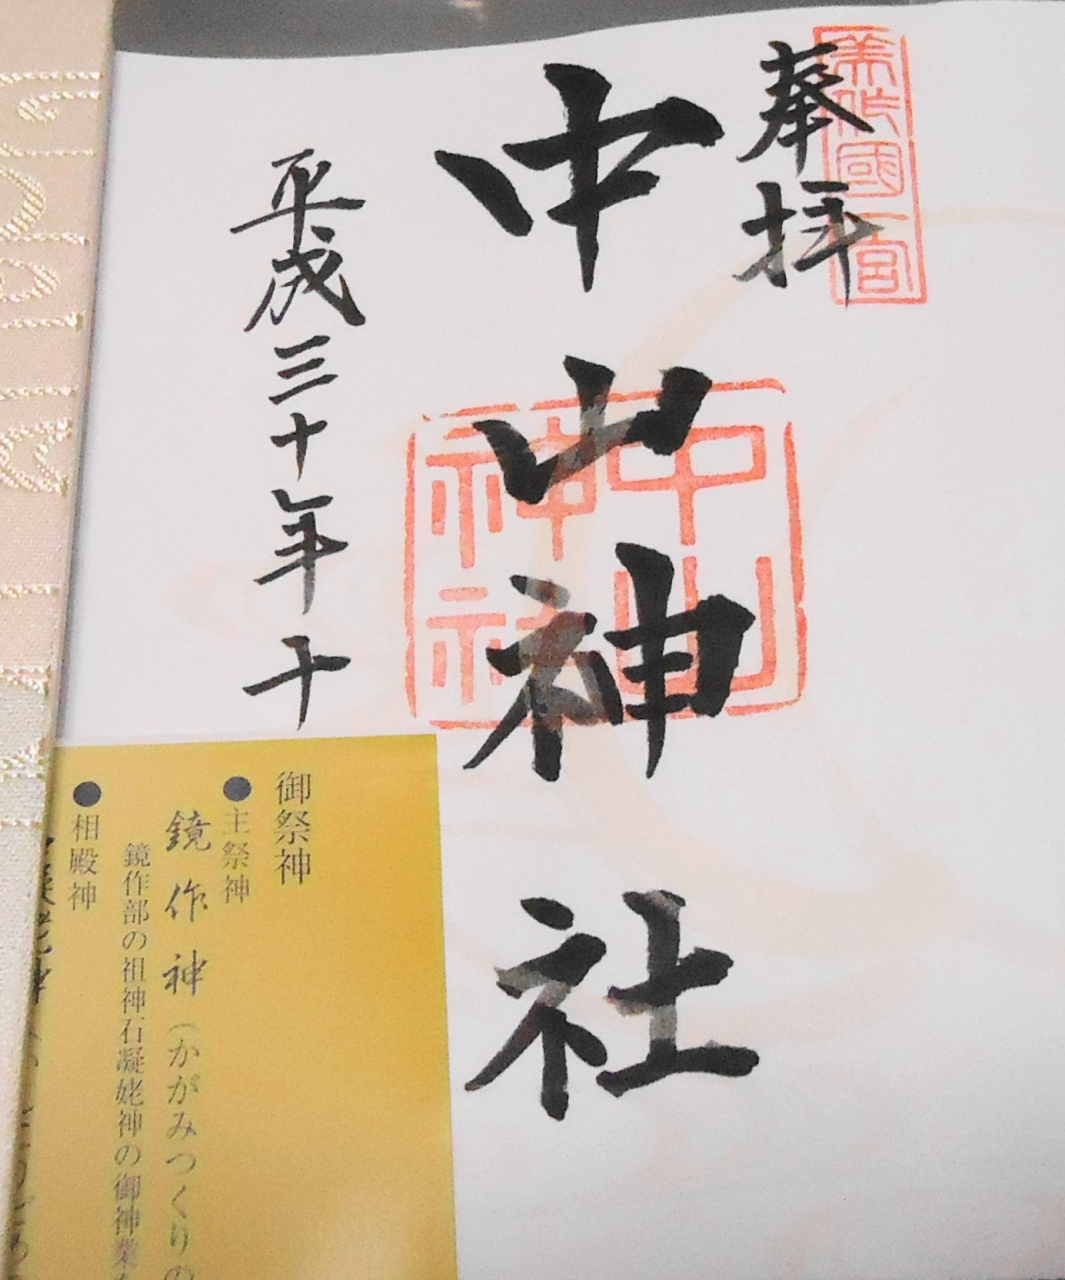 奉拝
美作國一宮
中山神社
中山
神社
平成三十年十
御祭神
●主祭神
鏡作神（かがみつくりの
鏡作部の祖神石凝姥神の御神業
●相殿神